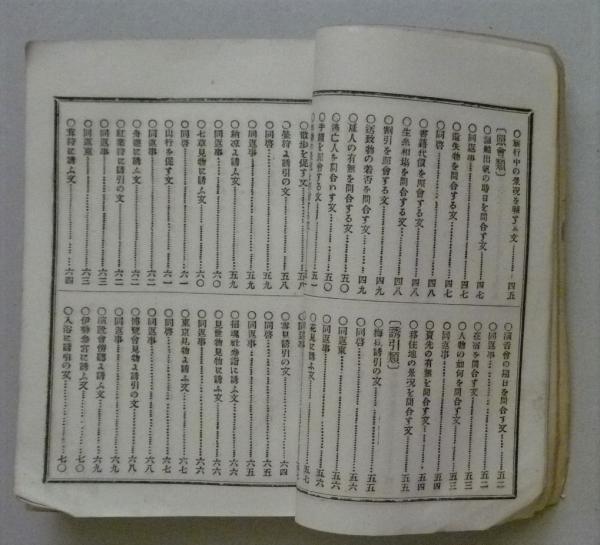 ○旅行中の景况を報す文……四五
〔照會類〕
○問合す文……四七
○同返事……四七
○遺失物を問合する文……四七
○同啓……四八
○書籍代價を照會する文……四八
○生糸相塲を問合する文……四八
○割引を照會する文……四九
○送致物の着否を問合す文……四九
○雇人の有無を問合する文……五〇
○逃亡人を問合す文……五〇
○演舌會の題日を問合す文……五二
○同返事……五二
○在宿を問合す文……五三
○人物の如何を問合す文……五三
○同返事……五四
○賣先の有無を問合す文……五四
○移住地の景況を問合す文……五五
〔誘引類〕
○梅見誘引の文……五五
○同啓……五五
○同返東……五六
○同返事……五六
○花見に誘ふ文……五七
○散歩を促す文……五八
○螢狩に誘引の文……五八
○同返事……五九
○納凉に誘ふ文……五九
○七草見物に誘ふ文……六〇
○同啓……六一
○山行を促す文……六一
○同返事……六二
○舟遊に誘ふ文……六二
○紅葉狩に誘引の文……六二
○同返事……六三
○同返東……六三
○茸狩に誘ふ文……六四
○雪見誘引の文……六四
○同啓……六五
○同返事……六五
○招魂社參詣に誘ふ文……六六
○見世物見物に誘ふ文……六六
○同返事……六六
○東京見物に誘ふ文……六七
○同啓……六八
○同返事……六八
○博覽會見物に誘引の文……六八
○同返事……六九
○演說會傍聽に誘ふ文……六九
○伊勢參宮に誘ふ文……七〇
○入浴に誘引の文……七〇